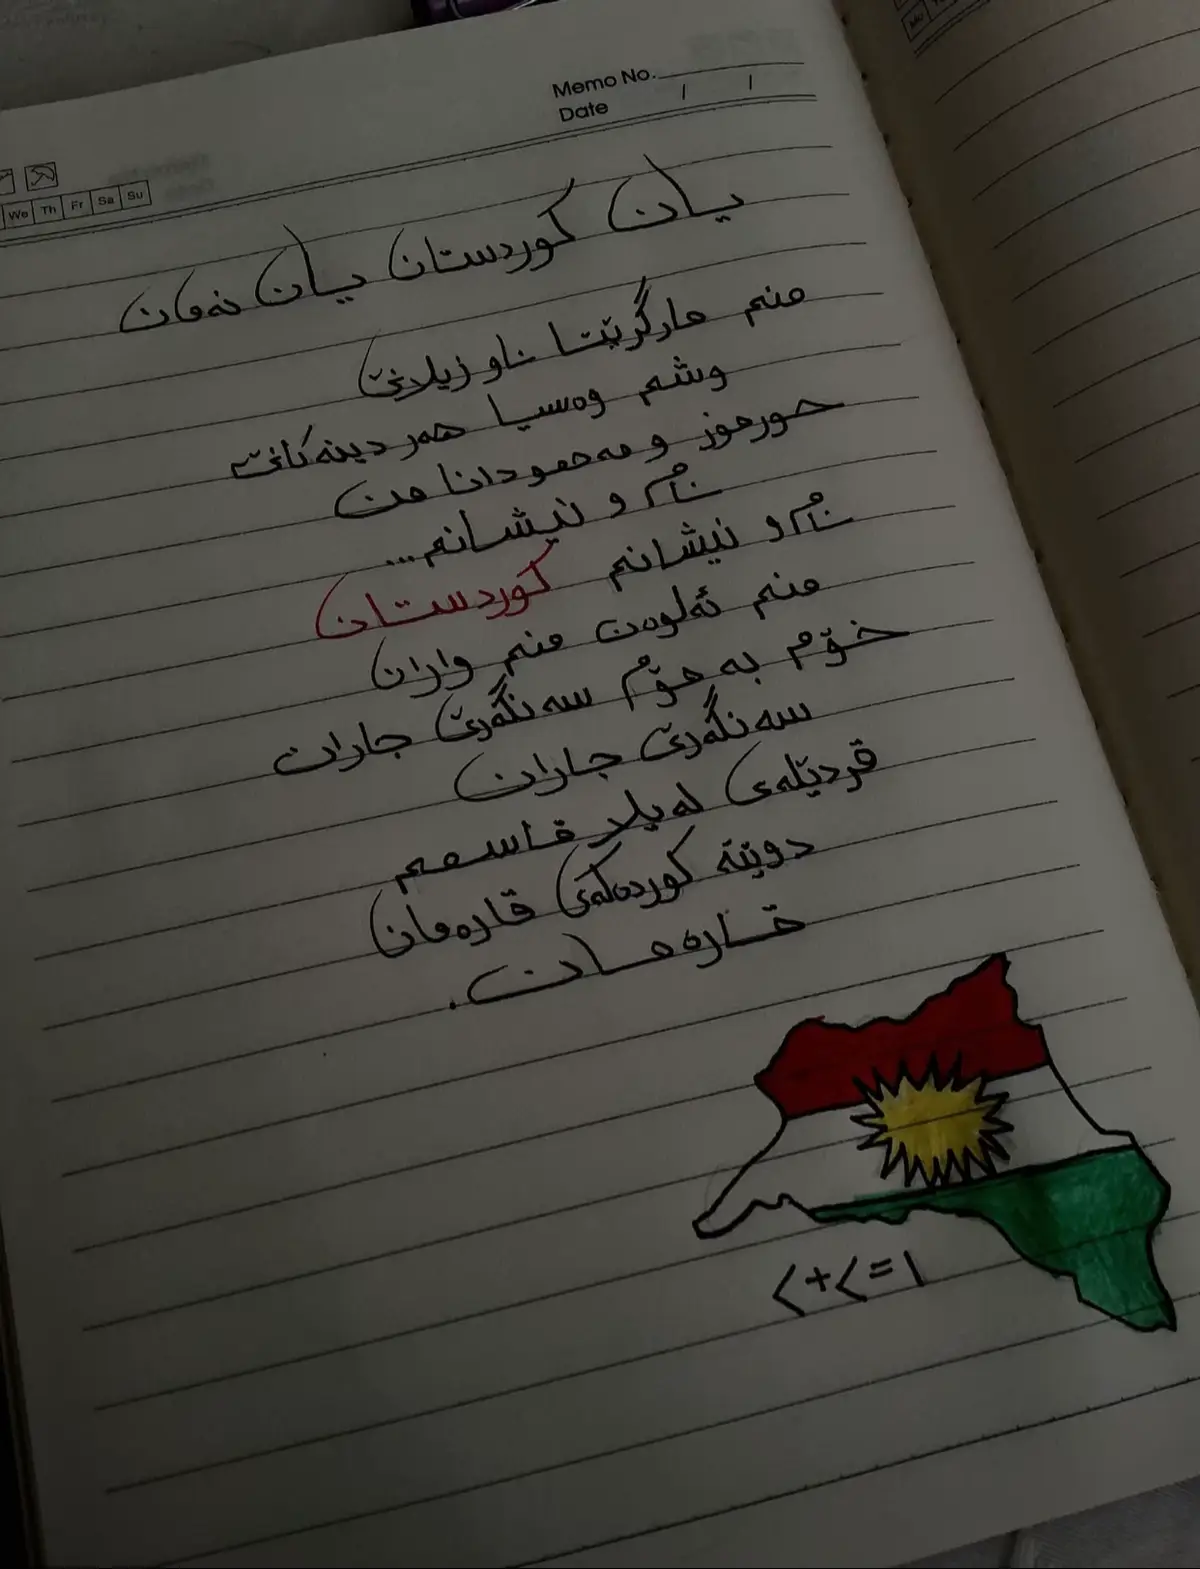 Memo No.
Date / /
We Th Fr Sa Su
یـان کوردستان یـان نەمان
منم مارگرێتـا ناو زیلانێ
وشم وەسیـا هەر دینەکانێ
حورموز و مەحمودانا من
نام و نیشـانم...
نام و نیشانم کوردستـان
منم ئەلوەن منم واران
خۆم بە خۆم سەنگەرێ جاران
سەنگەرێ جـاران
قردێلەی لەیلا قاسمم
دوێتە کوردەکەی قارەمان
قـارەمـان.
>+<=١